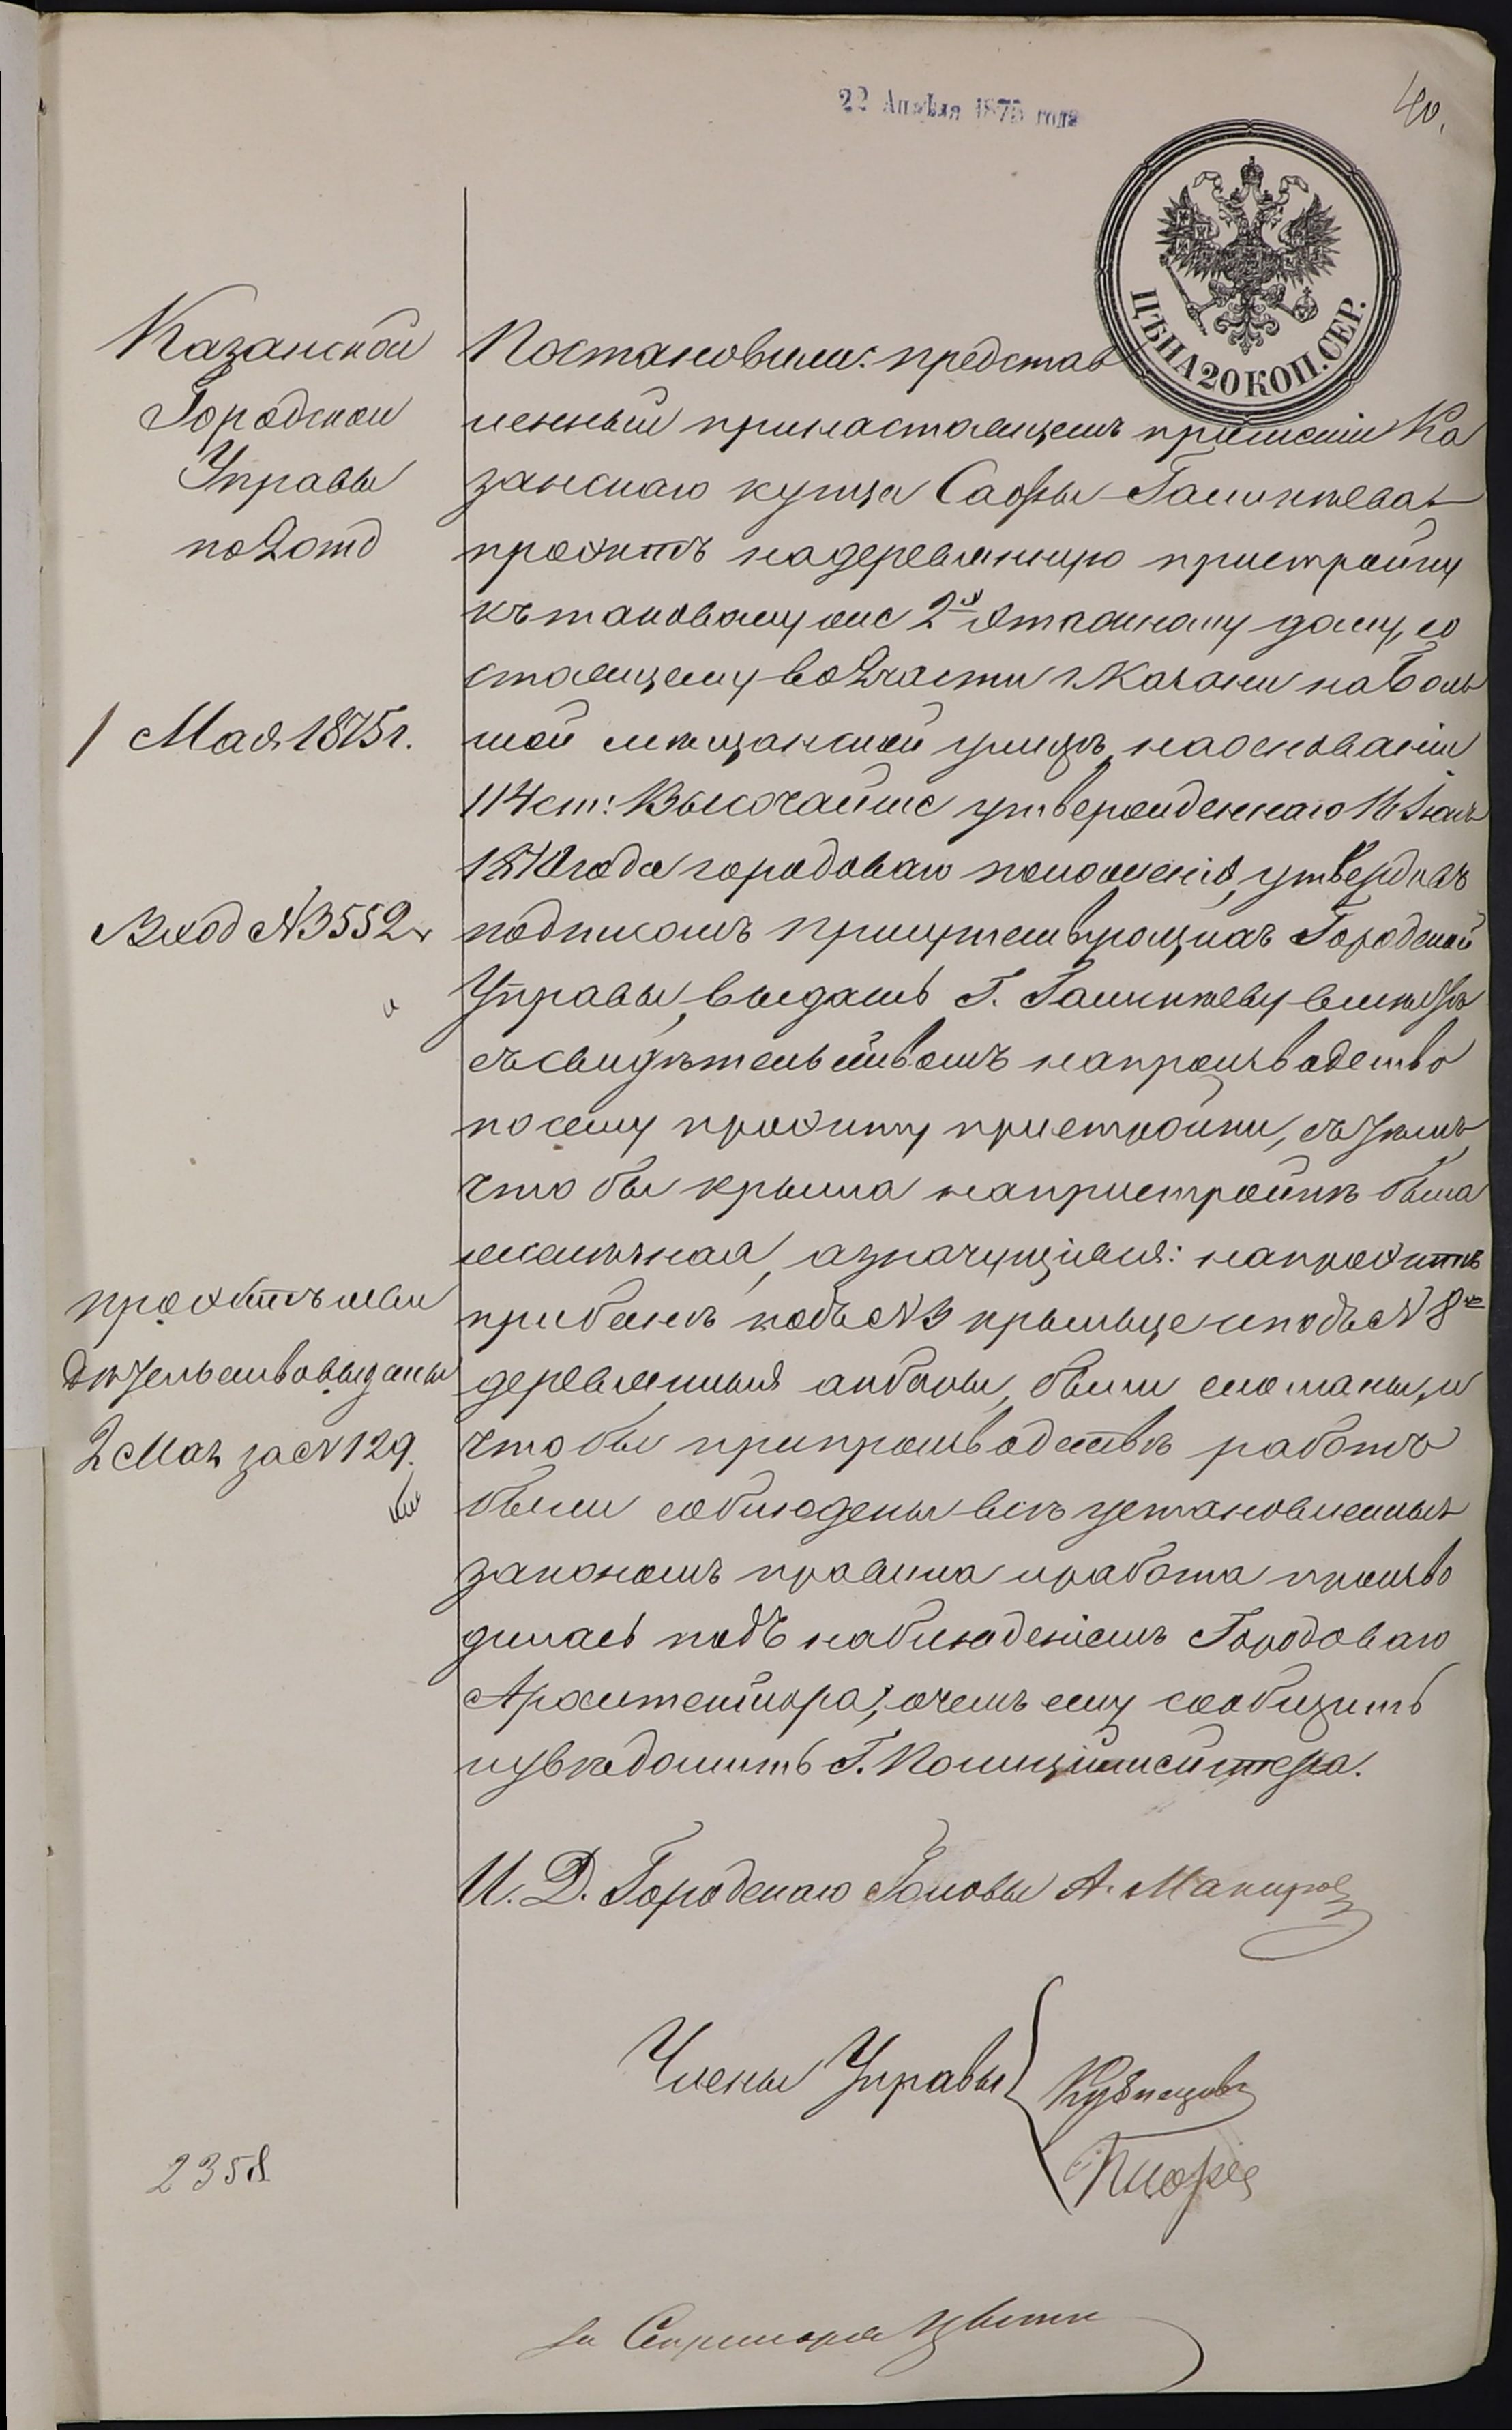 22 Апрѣля 1875 года
40.
ЦѢНА 20 КОП. СЕР.
Казанской
Городской
Управы
по 2 отд
1 Мая 1875 г.
Вход № 3552
проэктъ и сви
дѣтельство выданы
2 Мая за № 129.
2358
Постановили: представ
ленный при настоящемъ прошеніи Ка
занскаго купца Сафы Галикѣева
проэктъ на деревянную пристройку
къ таковому же 2х этажному дому, со
стоящему во 2 части г. Казани на Боль
шой мѣщанской улицѣ, на основаніи
114 ст: Высочайше утвержденнаго 16 Іюня
1870 года городоваго положенія, утвердивъ
подписомъ присутствующихъ Городской
Управы, выдать Г. Галикѣеву вмѣстѣ
съ свидѣтельствомъ на производство
по сему проэкту пристройки, съ тѣмъ,
что бы крыша на пристройкѣ была
желѣзная, а значущіяся: на проэктѣ
прибанъ подъ № 3 крыльце и подъ № 8мъ
деревянныя анбары, были сломаны, и
что бы при производствѣ работъ
были соблюдены всѣ установленныя
закономъ правила и работа произво
дилась подъ наблюденіемъ Городоваго
Архитектора, о чемъ ему сообщить
и увѣдомить Г. Полиціймейстера.
И. Д. Городскаго Головы А.
Члены Управы
Кузнецовъ
за Секретаря